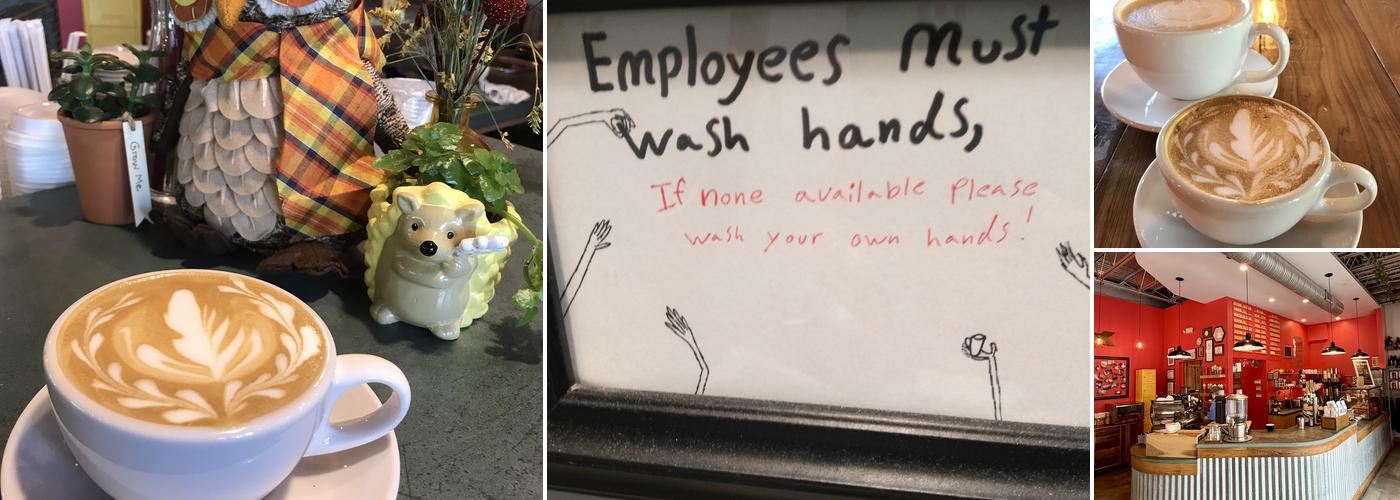 Grow Me
Employees Must
wash hands,
If none available Please
wash your own hands!